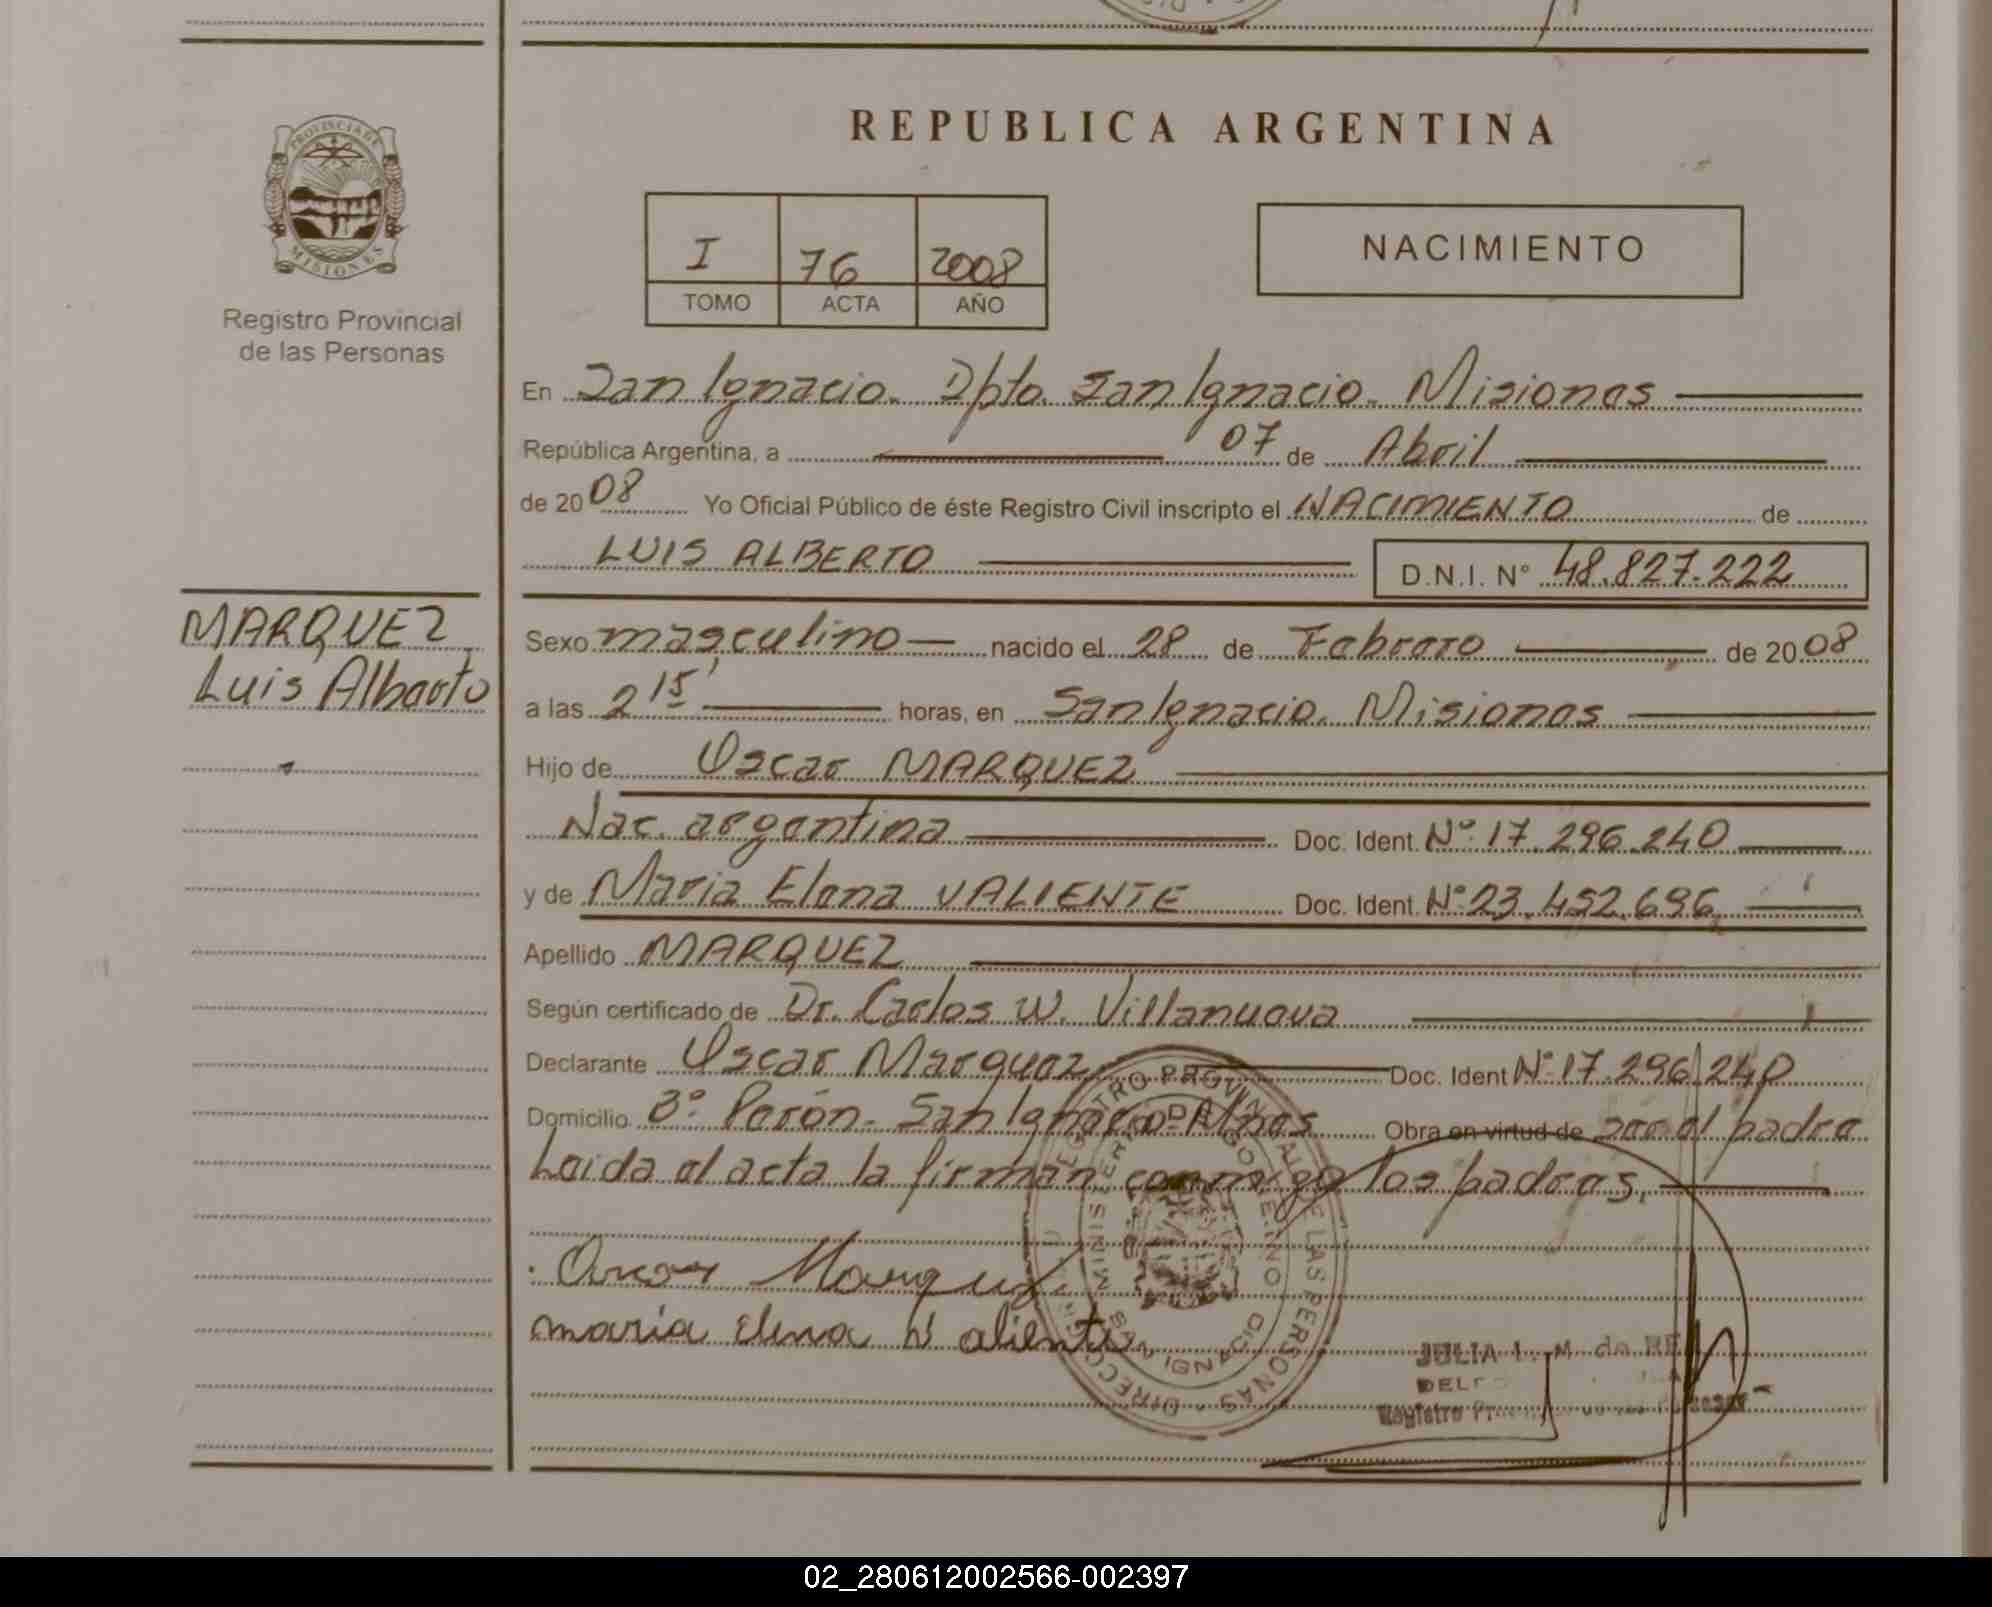 REPUBLICA ARGENTINA
PROVINCIA DE
MISIONES
Registro Provincial
de las Personas
I 76 2008
TOMO ACTA AÑO
NACIMIENTO
En San Ignacio. Dpto. San Ignacio. Misiones
República Argentina, a 07 de Abril
de 2008 Yo Oficial Público de éste Registro Civil inscripto el NACIMIENTO de
LUIS ALBERTO D.N.I. N° 48.827.222
MARQUEZ
Luis Alberto
Sexo masculino nacido el 28 de Febrero de 2008
a las 2 15' horas, en San Ignacio. Misiones
Hijo de Oscar MARQUEZ
Nac. argentina Doc. Ident. N° 17.296.240
y de Maria Elena VALIENTE Doc. Ident. N° 23.452.696
Apellido MARQUEZ
Según certificado de Dr. Carlos W. Villanueva
Declarante Oscar Marquez Doc. Ident N° 17.296.240
Domicilio B° Perón. San Ignacio. Mnes Obra en virtud de ser el padre
Leida el acta la firman conmigo los padres.
Oscar Marquez
maria Elena Valiente
DIRECCION REGISTRO PROVINCIAL DE LAS PERSONAS
MINISTERIO DE GOBIERNO
SAN IGNACIO
JULIA I. M. de
Registro
02_280612002566-002397